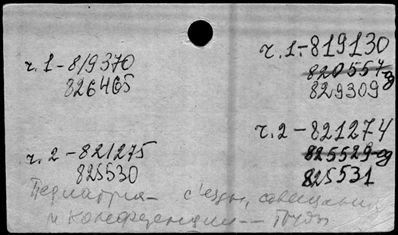 ч. 1 - 819370
826465
ч. 2 - 821275
825530
ч. 1. - 819130
820557
829309
ч. 2 - 821274
825529
825531
Педиатрия - съезды, совещания
и конференции -